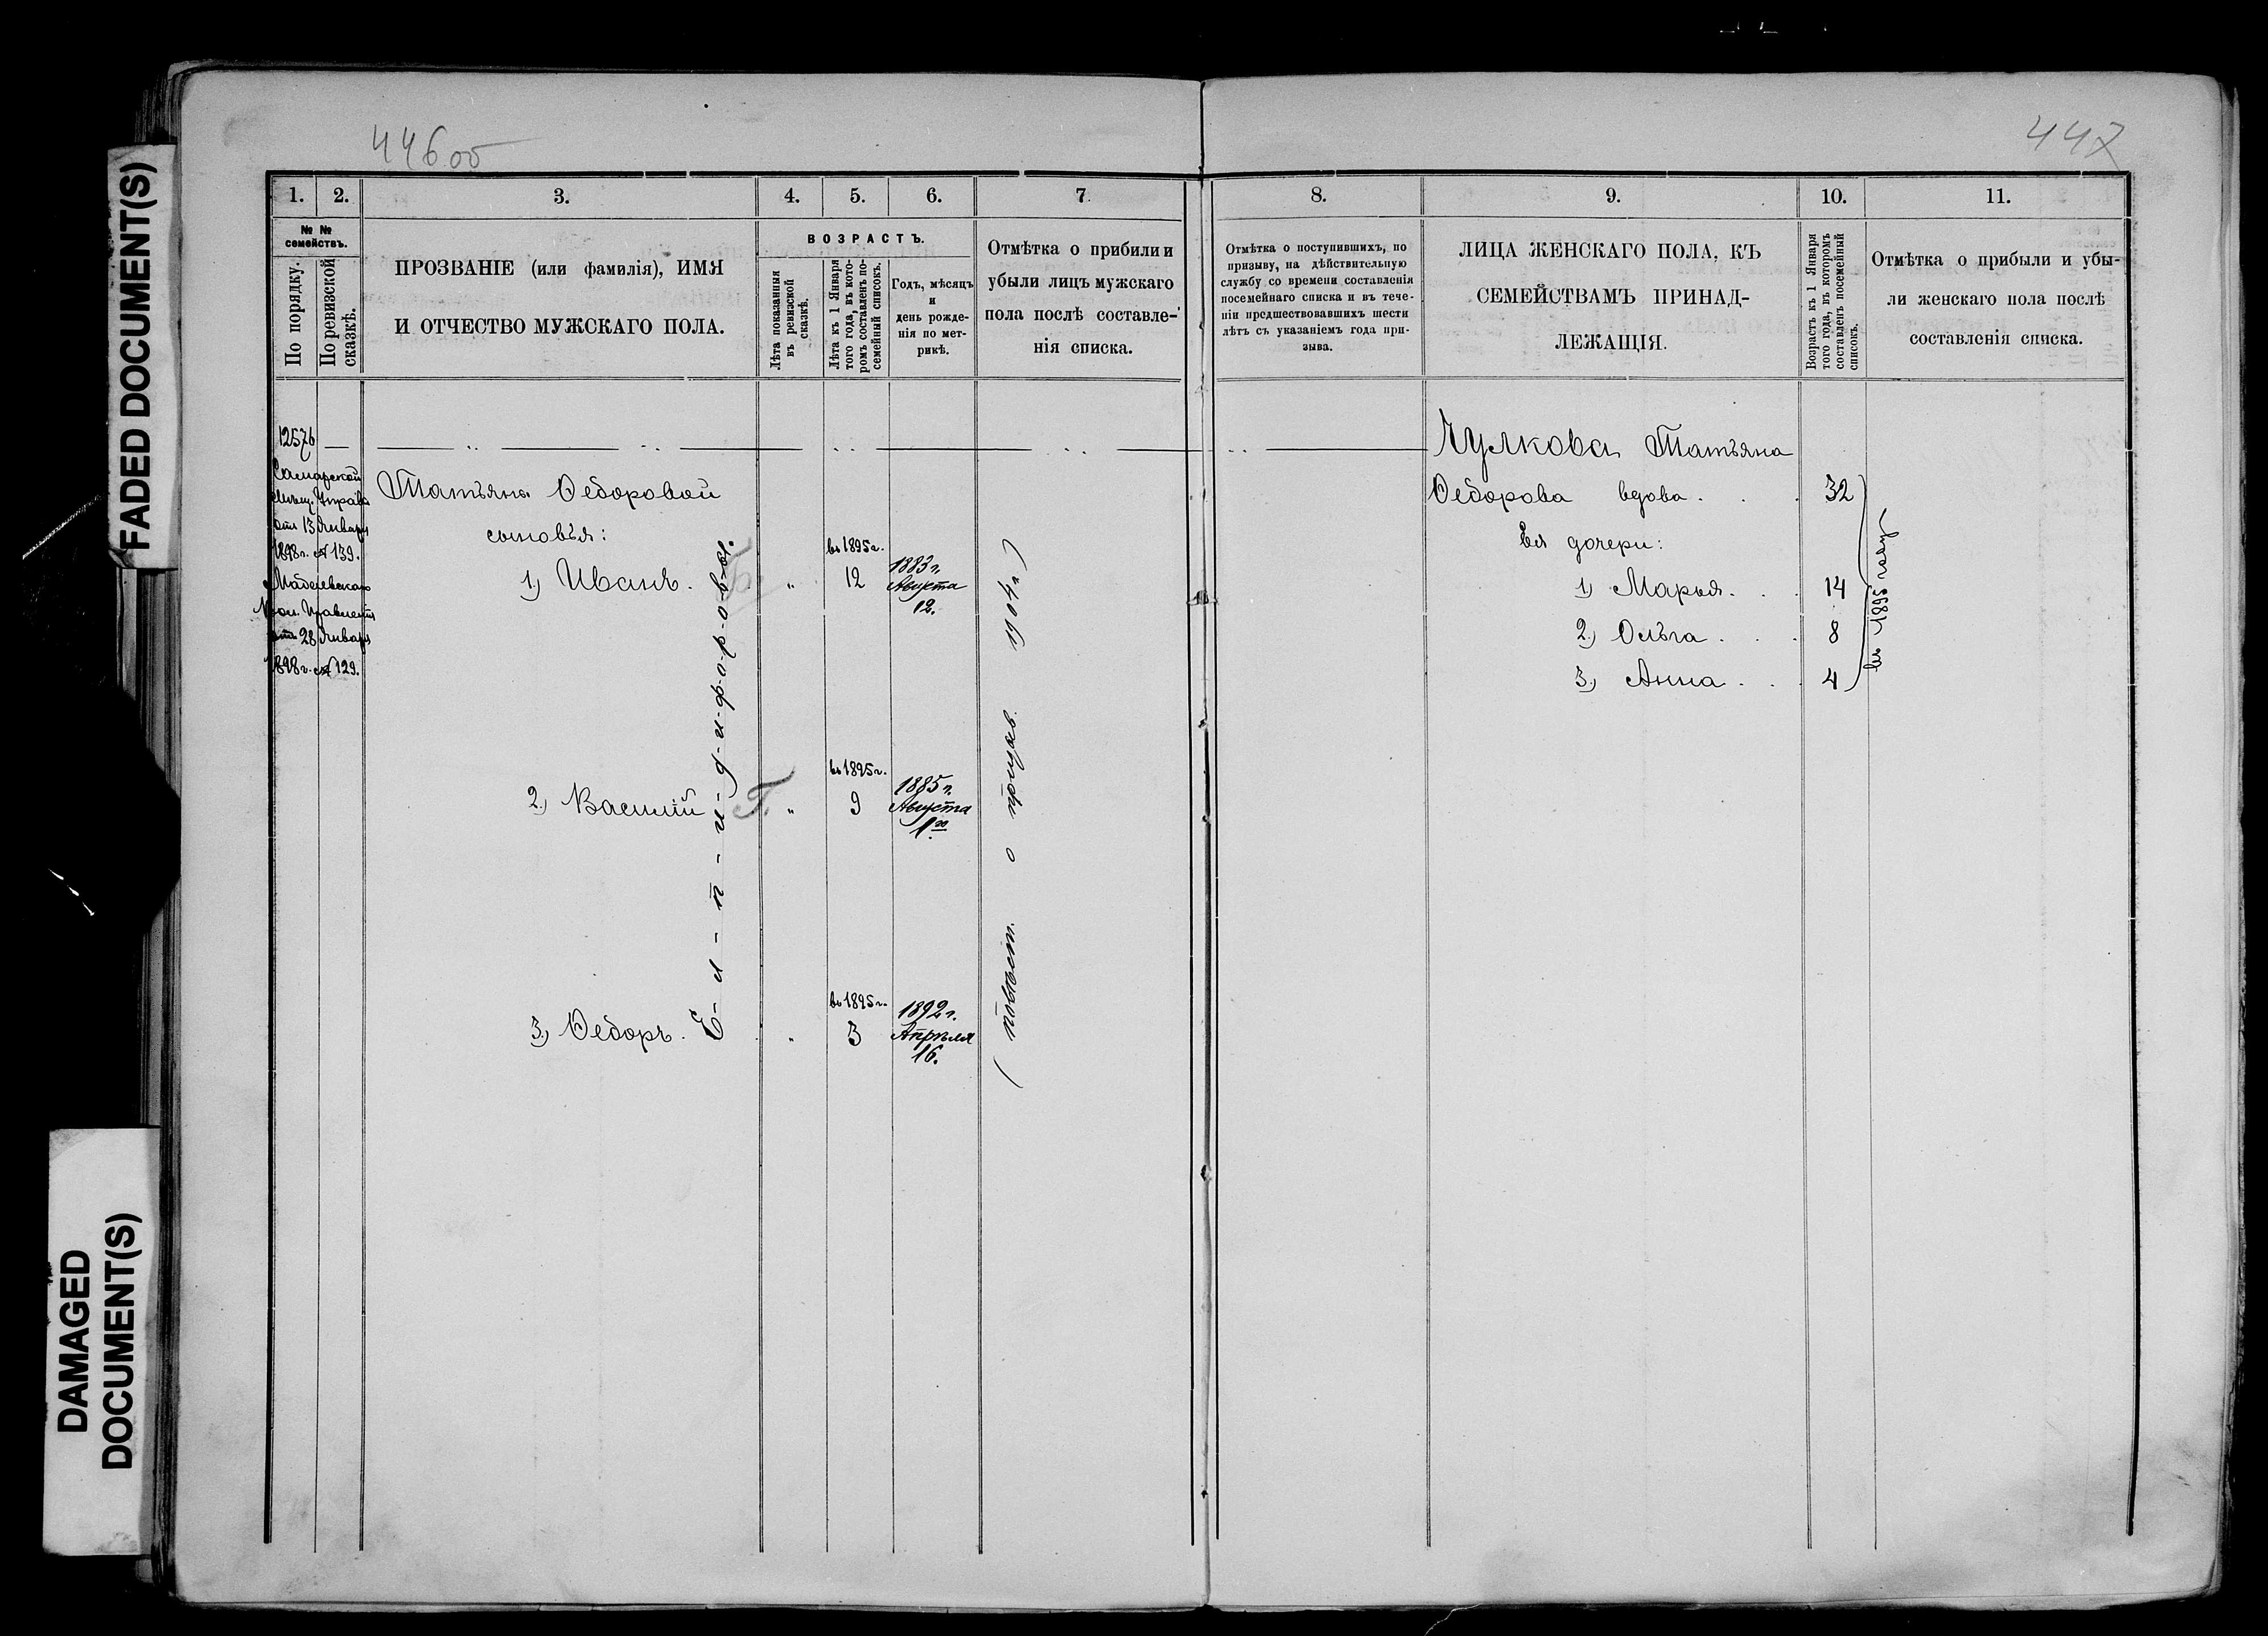 FADED DOCUMENT(S)
DAMAGED
DOCUMENT(S)
446 об
447
1.
2.
3.
4.
5.
6.
7
8.
9.
10.
11.
№ №
семействъ.
По порядку.
По ревизской
сказкѣ.
ПРОЗВАНІЕ (или фамилія), ИМЯ
И ОТЧЕСТВО МУЖСКАГО ПОЛА.
ВОЗРАСТЪ.
Лѣта показанныя
въ ревизской
сказкѣ.
Лѣта къ 1 Января
того года, въ кото-
ромъ составленъ по-
семейный списокъ.
Годъ, мѣсяцъ
и
день рожде-
нія по мет-
рикѣ.
Отмѣтка о прибыли и
убыли лицъ мужскаго
пола послѣ составле-
нія списка.
Отмѣтка о поступившихъ, по
призыву, на дѣйствительную
службу со времени составленія
посемейнаго списка и въ тече-
ніи предшествовавшихъ шести
лѣтъ съ указаніемъ года при-
зыва.
ЛИЦА ЖЕНСКАГО ПОЛА, КЪ
СЕМЕЙСТВАМЪ ПРИНАД-
ЛЕЖАЩІЯ.
Возрастъ къ 1 Января
того года, въ которомъ
составленъ посемейный
списокъ.
Отмѣтка о прибыли и убы-
ли женскаго пола послѣ
составленія списка.
12576 —
Самарской
Мѣщ. Управы
отъ 13 Января
1898 г. № 139.
Правленія
отъ 28 Января
1898 г. № 129.
Татьяны Ѳедоровой
сыновья:
1) Иванъ. „ въ 1895 г. 12 1883 г. Августа 12.
2.) Василій Г. „ въ 1895 г. 9 1885 г. Августа 1го
3.) Ѳедоръ. „ въ 1895 г. 3 1892 г. Апрѣля 16.
Е-л-п-и-д-и-ф-о-р-о-в-ы.
( повѣст. о призыв. 1904 г. )
Чулкова Татьяна
Ѳедорова вдова . . . 32
Ея дочери:
1) Марья . . 14
2.) Ольга . . . 8
3.) Анна . . . 4
въ 1895 году